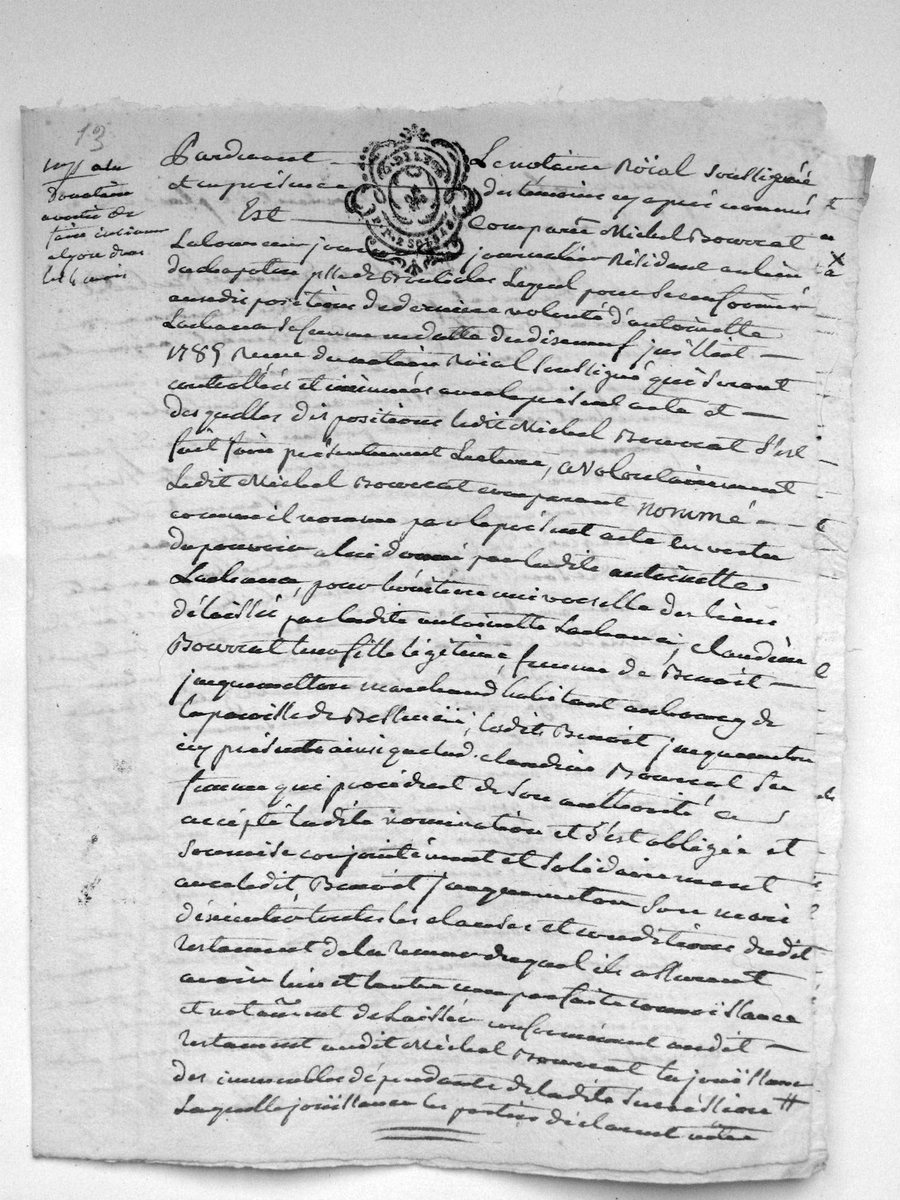 13
Pardevant Le notaire Roïal soussigné
et en présence des témoins cy après nommés
Est Comparu Michel Bourrat
journalier Résidant au lieu
du chapitre psse de Laquel pour se conformer
aux dispositions de derniere volonté d'antoinette
Lachana sa femme en datte du dixneuf juillet
1785 Reçue du notaire Roïal soussigné qui seront
controllées et insinuées avec le présent acte et
des quelles dispositions ledit Michel Bourrat s'est
fait faire présentement Lecture, a volontairement
Ledit Michel Bourrat comparant nommé
comme il nomme par le présent acte en vertu
du pouvoir a lui donné par ladite antoinette
Lachana, pour héritiere universelle des biens
délaissés par ladite antoinette Lachana, claudine
Bourrat leur fille légitime, femme de Benoit
jacquemetton marchand habitant au bourg de
la paroisse de ledit Benoit jacquemetton
cy présents ainsi que lad. claudine Bourrat sa
femme qui procédent de son authorité a
accépté ladite nomination et s'est obligée et
soumise conjointément et solidairement
avec ledit Benoit jacquemetton son mari
d'éxécuter toutes les clauses et conditions dudit
testament de la teneur duquel ils assurent
avoir bonne et parfaite connoissance
et notament de Laisser conformément audit
testament audit Michel Bourrat la joüissance
des immeubles dépendants de ladite succéssion #
Laquelle joüissance les parties déclarent